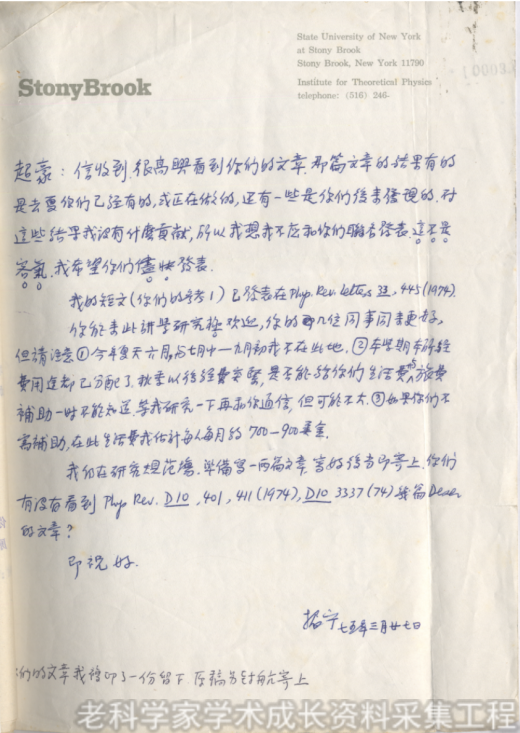 State University of New York
at Stony Brook
Stony Brook, New York 11790
Institute for Theoretical Physics
telephone: (516) 246-
StonyBrook
超豪：信收到，很高興看到你们的文章。那篇文章的结果有的
是去夏你们已经有的，或正在做的，还有一些是你们後来發現的。对
这些结果我没有什麽貢献，所以我想我不应和你们聯名發表。这不是
客氣。我希望你们儘快發表。
我的短文（你们的参考1）已發表在 Phys. Rev. Letters 33, 445 (1974).
你能来此講学研究極欢迎，你的几位同事同来更好，
但請注意①今年夏天六月，与七月中—九月初我不在此地。②本学期本所经
費用途都已分配了，秋季以後经費奇緊，是否能给你们生活費，旅費
補助一时不能知道，等我研究一下再和你通信，但可能不大。③如果你们不
需補助，在此生活費我估计每人每月约 700—900 美金。
我们在研究規范場，準備写一两篇文章，写好後当即寄上。你们
有没有看到 Phys. Rev. D10, 401, 411 (1974), D10 3337 (74) 等篇 Deser
的文章？
即祝 好.
振宁 七五年三月廿七日
们的文章我複印了一份留下，原稿另封航寄上
老科学家学术成长资料采集工程